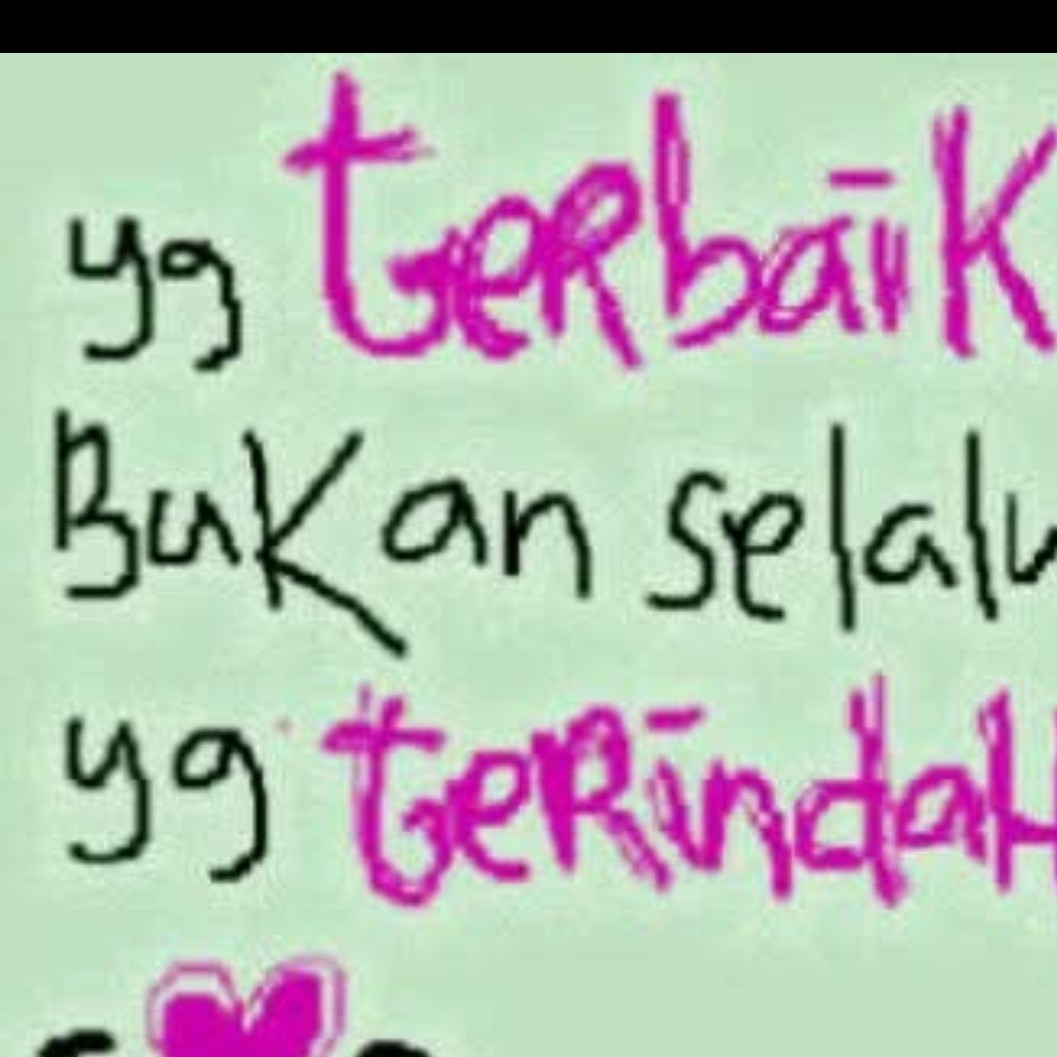 yg terbaik
Bukan selalu
yg terindah